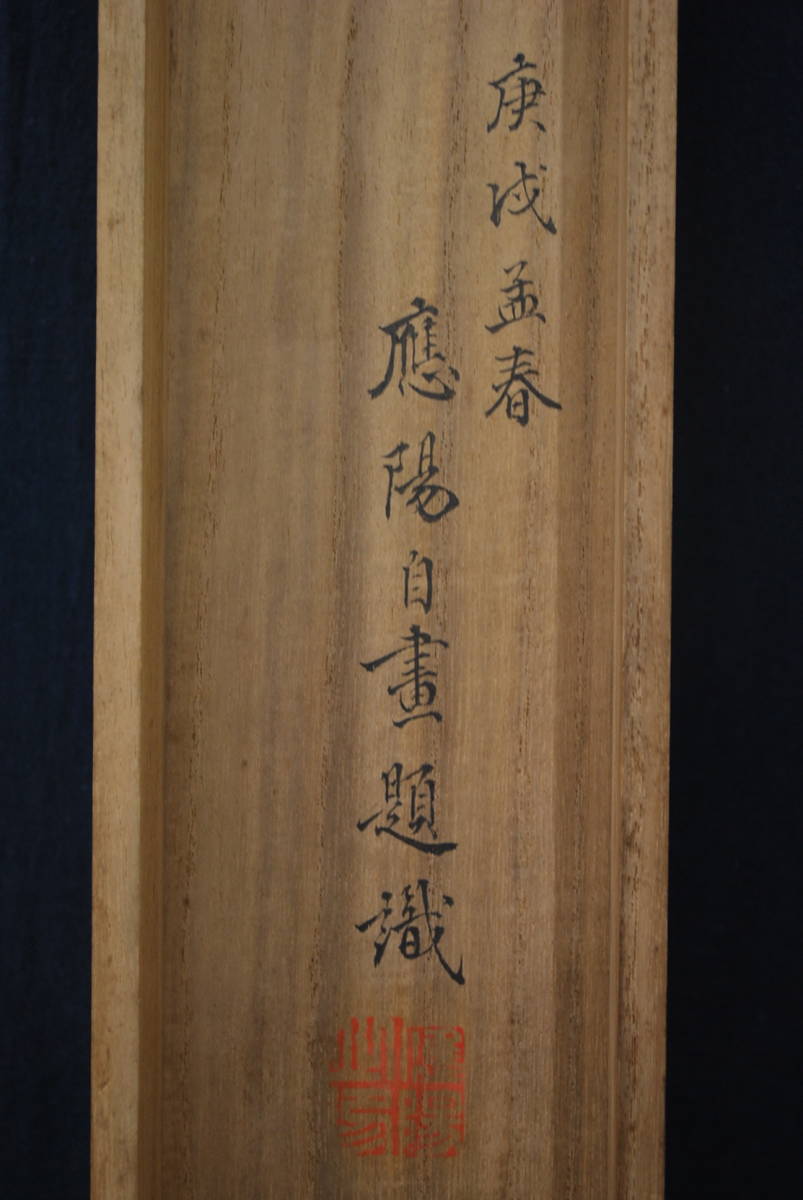 庚戌孟春
應陽自畫題識